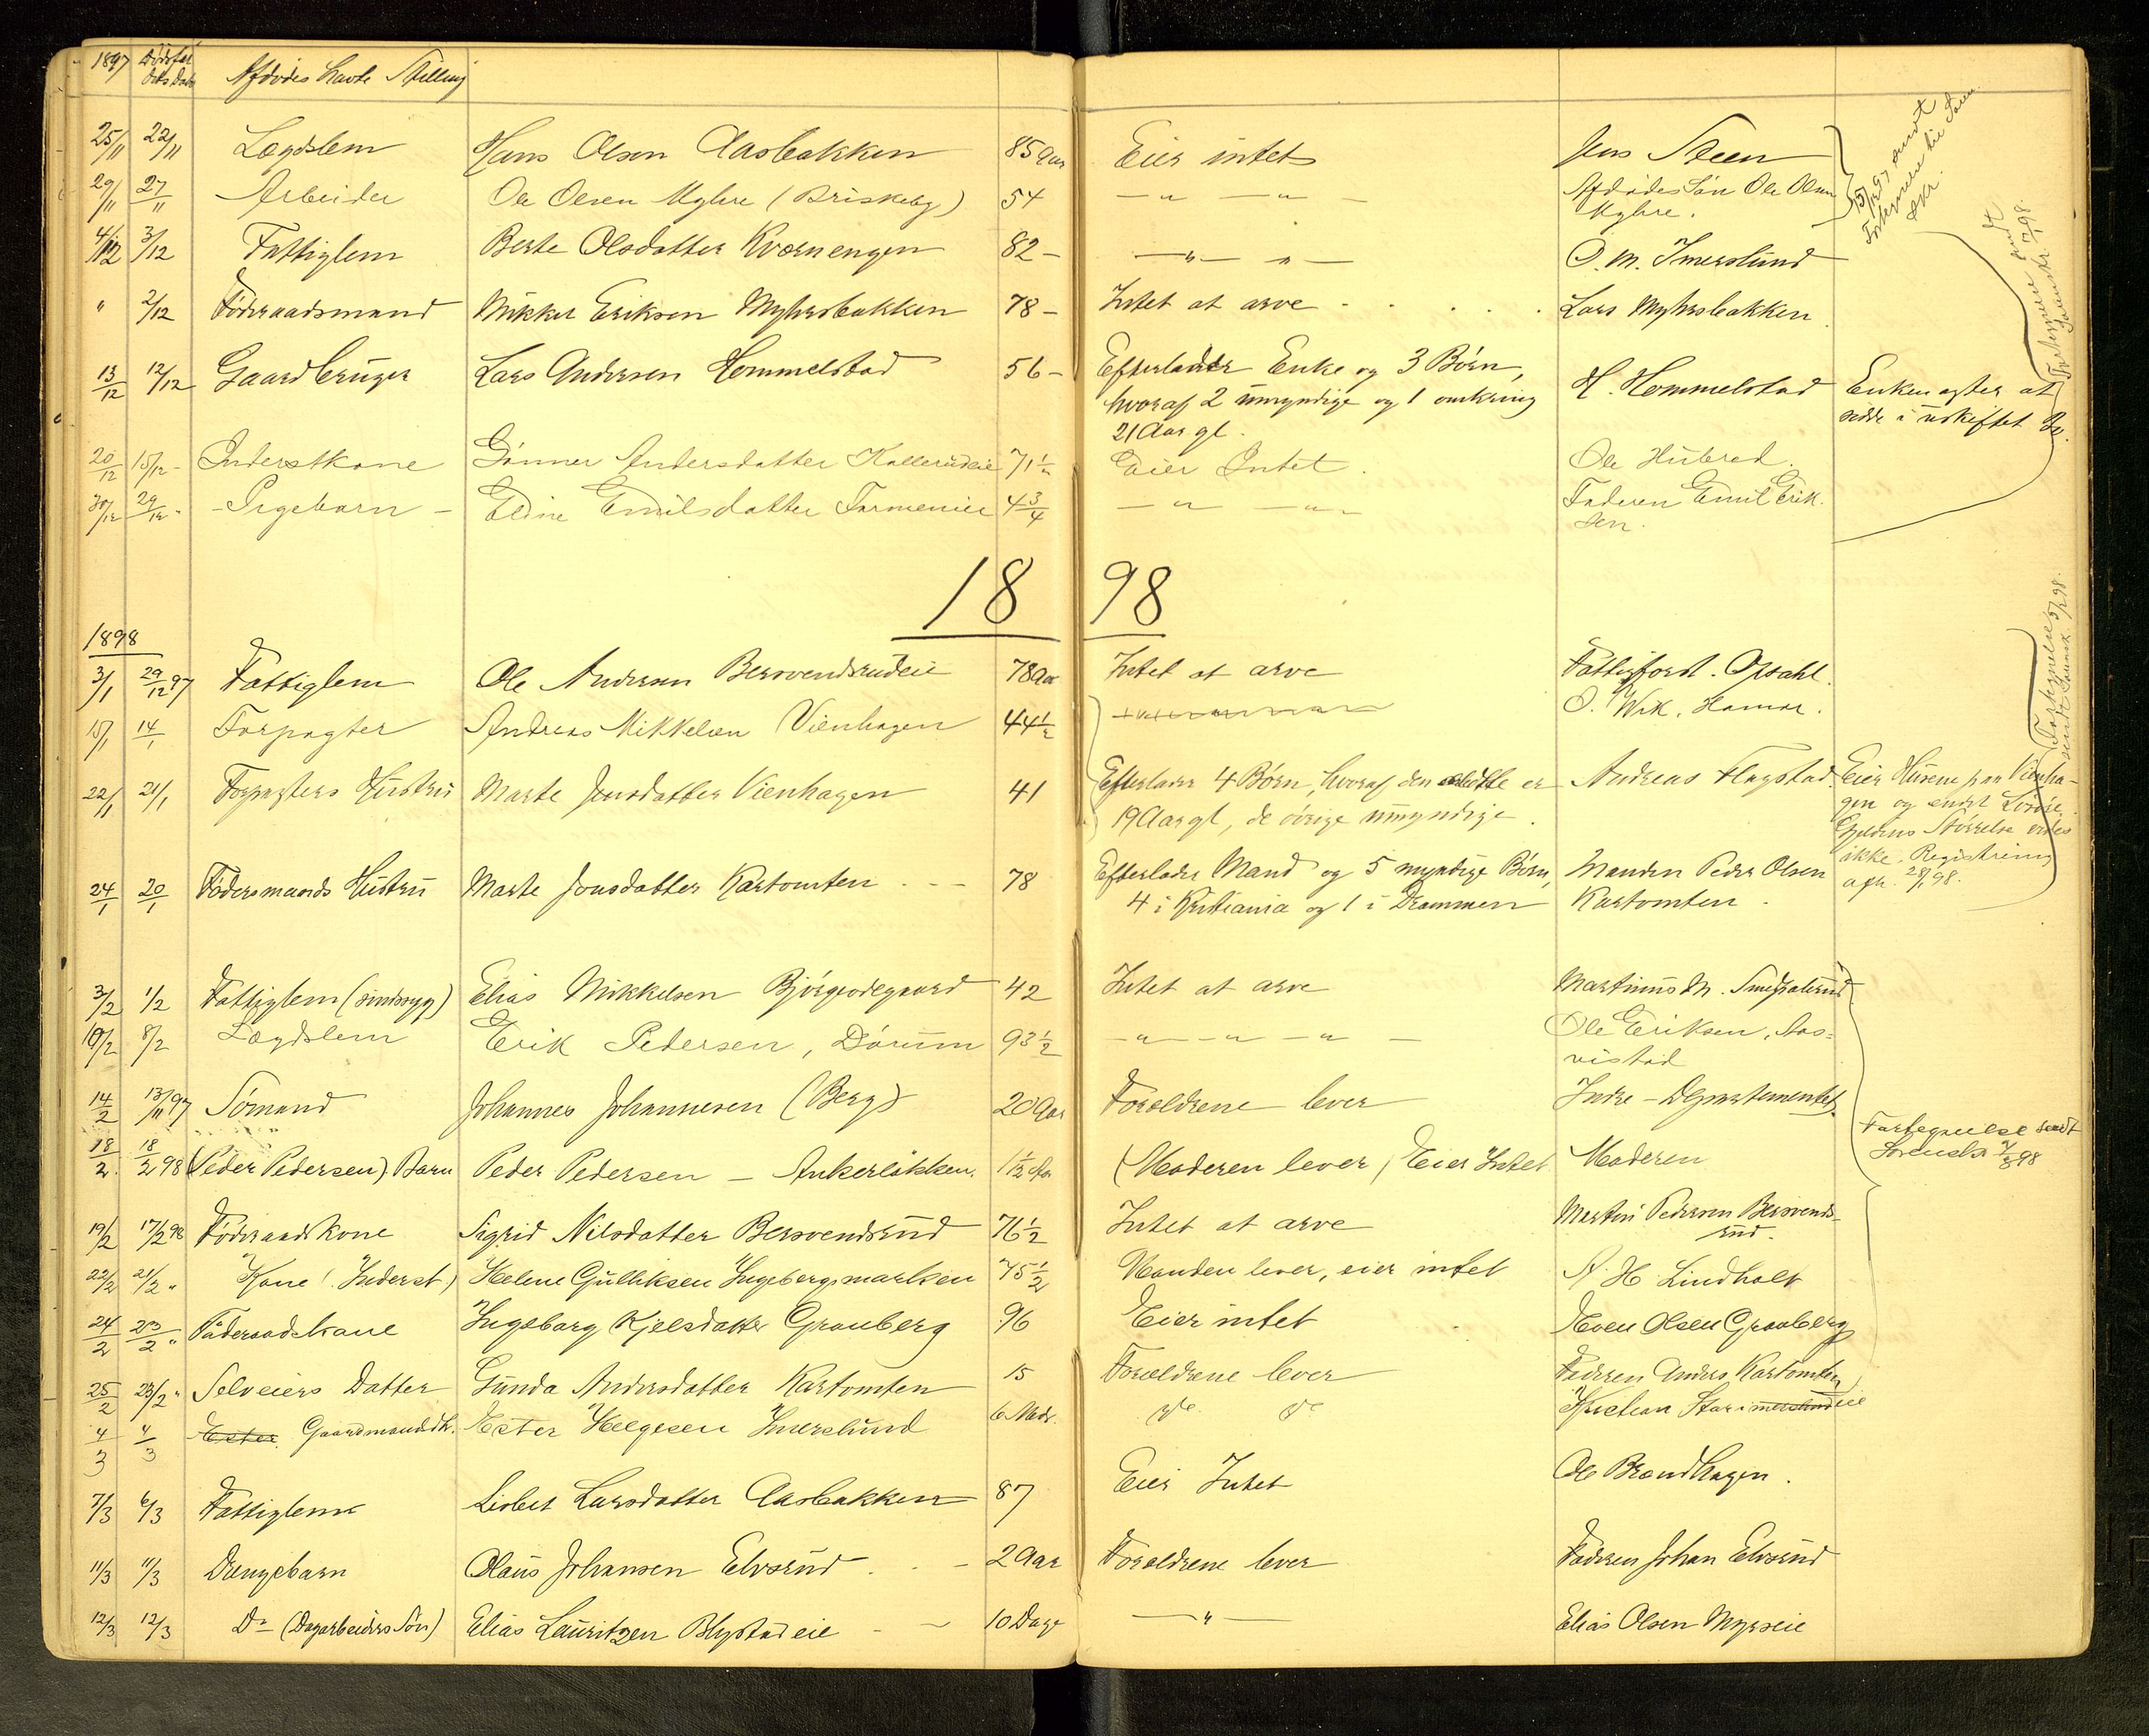 1897 Dødsfal Afdødes Navn Stilling
25/11 22/11 Lægdslem Hans Olsen Aasbakken 85 Aar Eier intet Jens Steen
29/11 27/11 Arbeider Ole Olsen Myhre (Briskeby) 54 — " — " — Afdødes Søn Ole Olsen
Myhre.
4/12 3/12 Fattiglem Berte Olsdatter Kværnengen 82 — — " — " — O. M. Imerslund
" 2/12 Føderaadsmand Mikkel Eriksen Myhrsbakken 78 — Intet at arve Lars Myhrsbakken
13/12 12/12 Gaardbruger Lars Andersen Hommelstad 56 — Efterlader Enke og 3 Børn, H. Hommelstad Enken agter at
hvoraf 2 umyndige og 1 omkring sidde i uskiftet Bo.
21 Aar gl.
20/12 15/12 Inderstkone Gunner Andersdatter Kollerudeie 71 1/2 Eier Intet. Ole Hubred.
30/12 29/12 Pigebarn Eline Emilsdatter Furmeneie 4 3/4 — " — " — Faderen Emil Erik-
sen.
15/12 97 sendt
Fortegnelse til Soren-
skr.
Fortegnelse sendt
Sorenskr. 7/1 98.
18 98
1898
3/1 29/12 97 Fattiglem Ole Andersen Bersvendsrudeie 78 Aar Intet at arve Fattigforst. Opsahl.
15/1 14/1 Forpagter Andreas Mikkelsen Vienhagen 44 1/2 O. Wik. Hamar.
22/1 21/1 Forpagters Hustru Marte Jensdatter Vienhagen 41 Efterlader 4 Børn, hvoraf den ældste er Andreas Flagstad. Eier Husene paa Vienha-
19 Aar gl, de øvrige umyndige. gen og endel Løsøre.
Gjeldens Størrelse vides
ikke. Registrering
afh. 28/1 98.
24/1 20/1 Fødersmands Hustru Marte Jonsdatter Kartomten 78 Efterlader Mand og 5 myndige Børn, Manden Peder Olsen
4 i Kristiania og 1 i Drammen Kartomten.
Fortegnelse
sendt Sorensk. 5/2 98.
3/2 1/2 Fattiglem (sindssyg) Elias Mikkelsen Bjørgeødegaard 42 Intet at arve Martinus M.
10/2 8/2 Lægdslem Erik Pedersen, Dørum 93 1/2 — " — " — " — Ole Eriksen, Aas-
vistad
14/2 13/11 97 Sømand Johannes Johannesen (Berg) 20 Aar Forældrene lever Indre-Departementet
18/2 18/2 98 (Peder Pedersen) Barn Peder Pedersen — Ankerløkken. 1 1/2 Aar (Moderen lever) Eier Intet Moderen
Fortegnelse sendt
Sorenskr 7/3 98
19/2 17/2 98 Føderaadskone Sigrid Nilsdatter Bersvendsrud 76 1/2 Intet at arve Martin Pedersen Bersvends-
rud.
22/2 21/2 " Kone (Inderst.) Helene Gulliksen Ingebergsmarken 75 1/2 Manden lever, eier intet A. H. Lindholt
24/2 23/2 " Føderaadskone Ingeborg Kjelsdatter Grauberg 96 Eier intet Even Olsen Grauberg
25/2 23/2 " Selveiers Datter Gunda Andersdatter Kartomten 15 Forældrene lever Faderen Anders Kartomten
4/3 4/3 Ester Gaardmandsdt. Ester Helgesen Imerslund 6 Mdr. do do Kristian
7/3 6/3 Fattiglem Lisbet Larsdatter Aasbakken 87 Eier Intet Ole Brændhagen.
11/3 11/3 Drengebarn Olaus Johansen Elvsrud 2 Aar Forældrene lever Faderen Johan Elvsrud
12/3 12/3 Do (Dagarbeiders Søn) Elias Lauritzen Blystadeie 10 Dage — " — Elias Olsen Myrseie